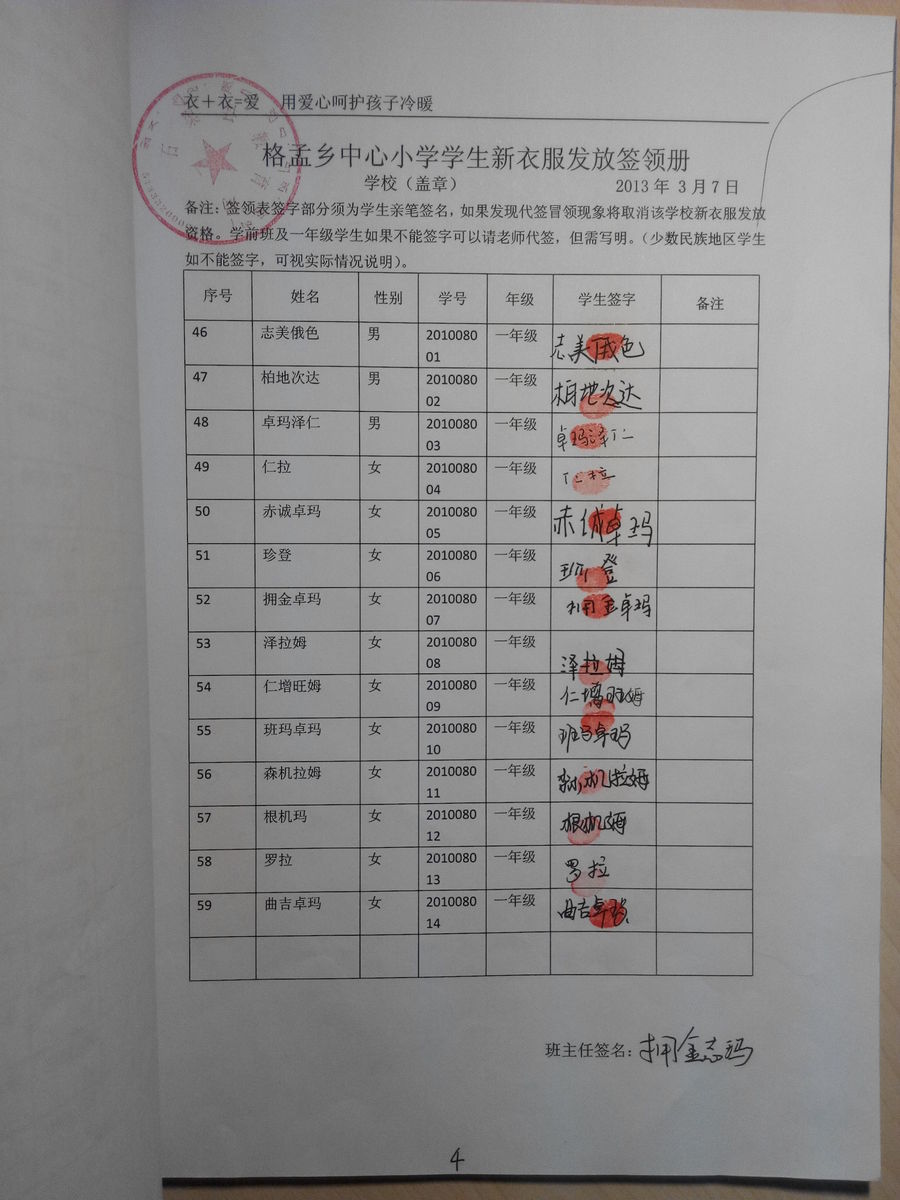 衣＋衣=爱 用爱心呵护孩子冷暖
格孟乡中心小学学生新衣服发放签领册
学校（盖章） 2013 年 3 月 7 日
备注：签领表签字部分须为学生亲笔签名，如果发现代签冒领现象将取消该学校新衣服发放
资格。学前班及一年级学生如果不能签字可以请老师代签，但需写明。（少数民族地区学生
如不能签字，可视实际情况说明）。
序号 姓名 性别 学号 年级 学生签字 备注
46 志美俄色 男 20100801 一年级 志美俄色
47 柏地次达 男 20100802 一年级 柏地次达
48 卓玛泽仁 男 20100803 一年级 卓玛泽仁
49 仁拉 女 20100804 一年级 仁拉
50 赤诚卓玛 女 20100805 一年级 赤诚卓玛
51 珍登 女 20100806 一年级 珍登
52 拥金卓玛 女 20100807 一年级 拥金卓玛
53 泽拉姆 女 20100808 一年级 泽拉姆
54 仁增旺姆 女 20100809 一年级 仁增旺姆
55 班玛卓玛 女 20100810 一年级 班玛卓玛
56 森机拉姆 女 20100811 一年级 森机拉姆
57 根机玛 女 20100812 一年级 根机姆
58 罗拉 女 20100813 一年级 罗拉
59 曲吉卓玛 女 20100814 一年级 曲吉卓玛
班主任签名：拥金志玛
4